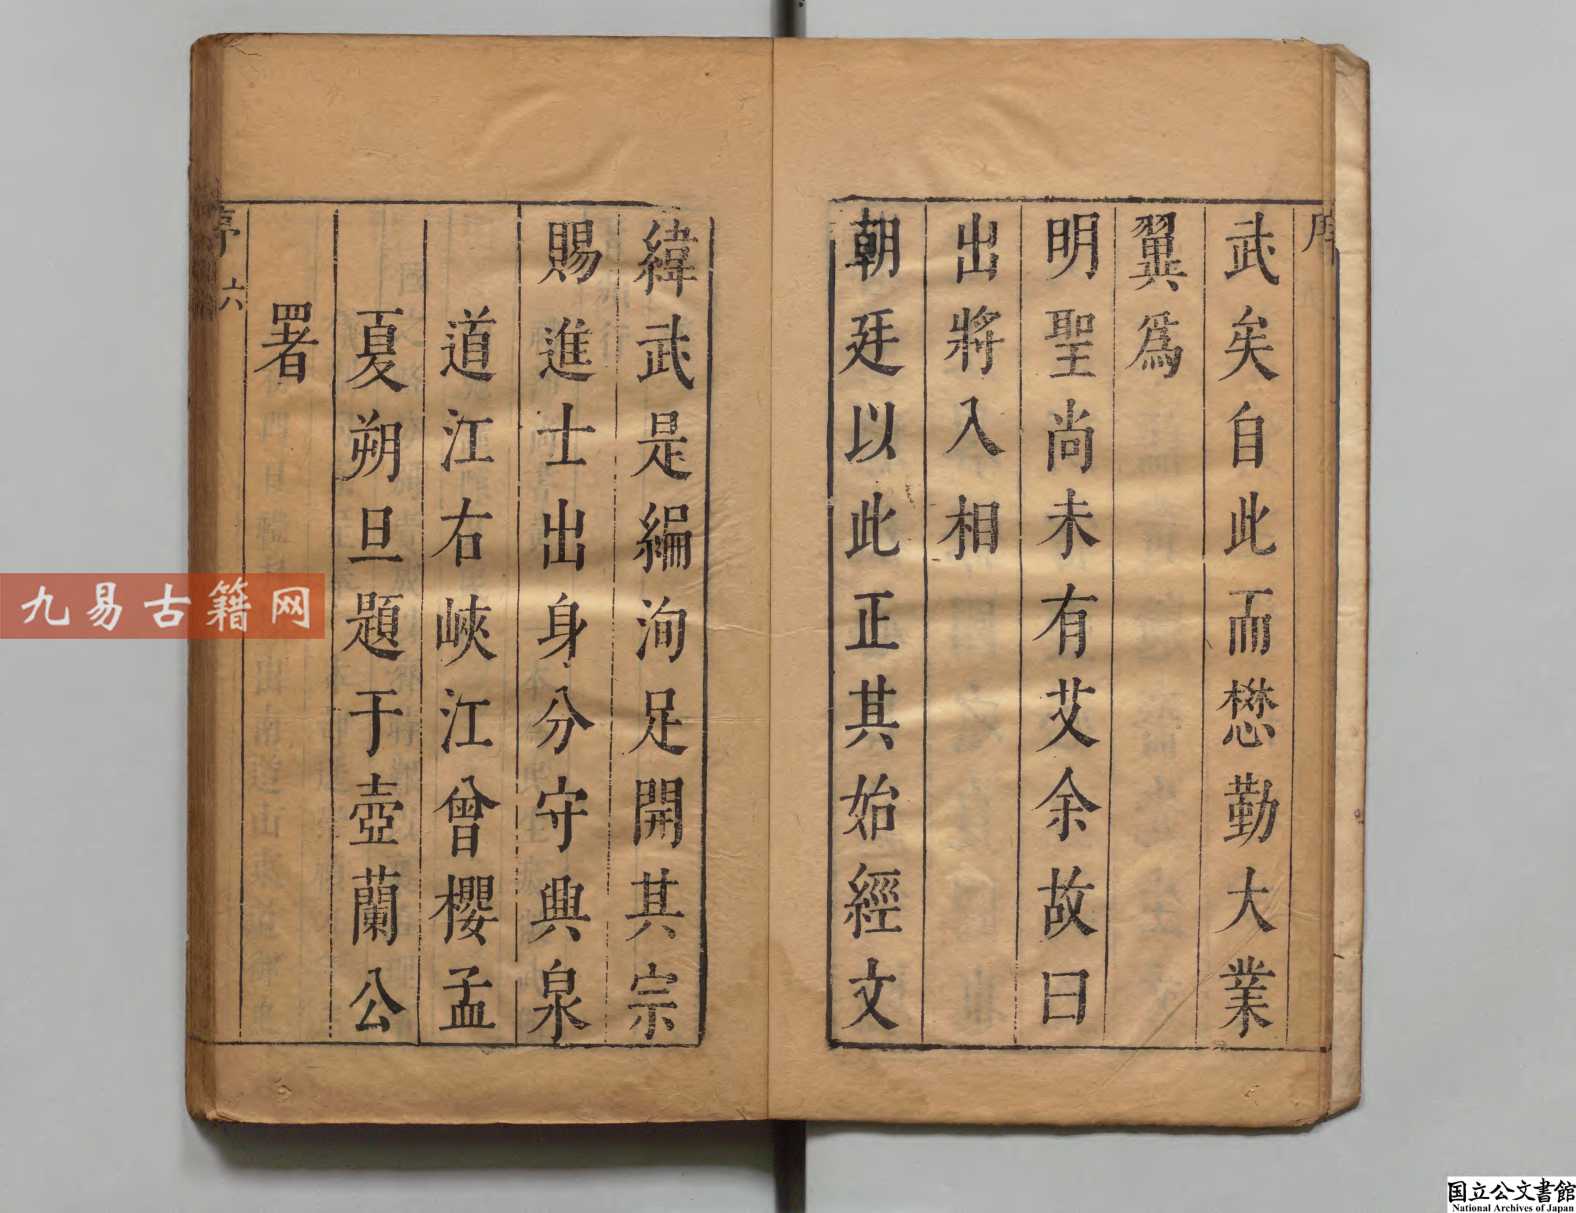 序
武矣自此而懋勤大業
翼爲
明聖尚未有艾余故曰
出將入相
朝廷以此正其始經文
緯武是編洵足開其宗
賜進士出身分守興泉
道江右峽江曾櫻孟
夏朔旦題于壺蘭公
署
序 六
九易古籍网
国立公文書館
National Archives of Japan